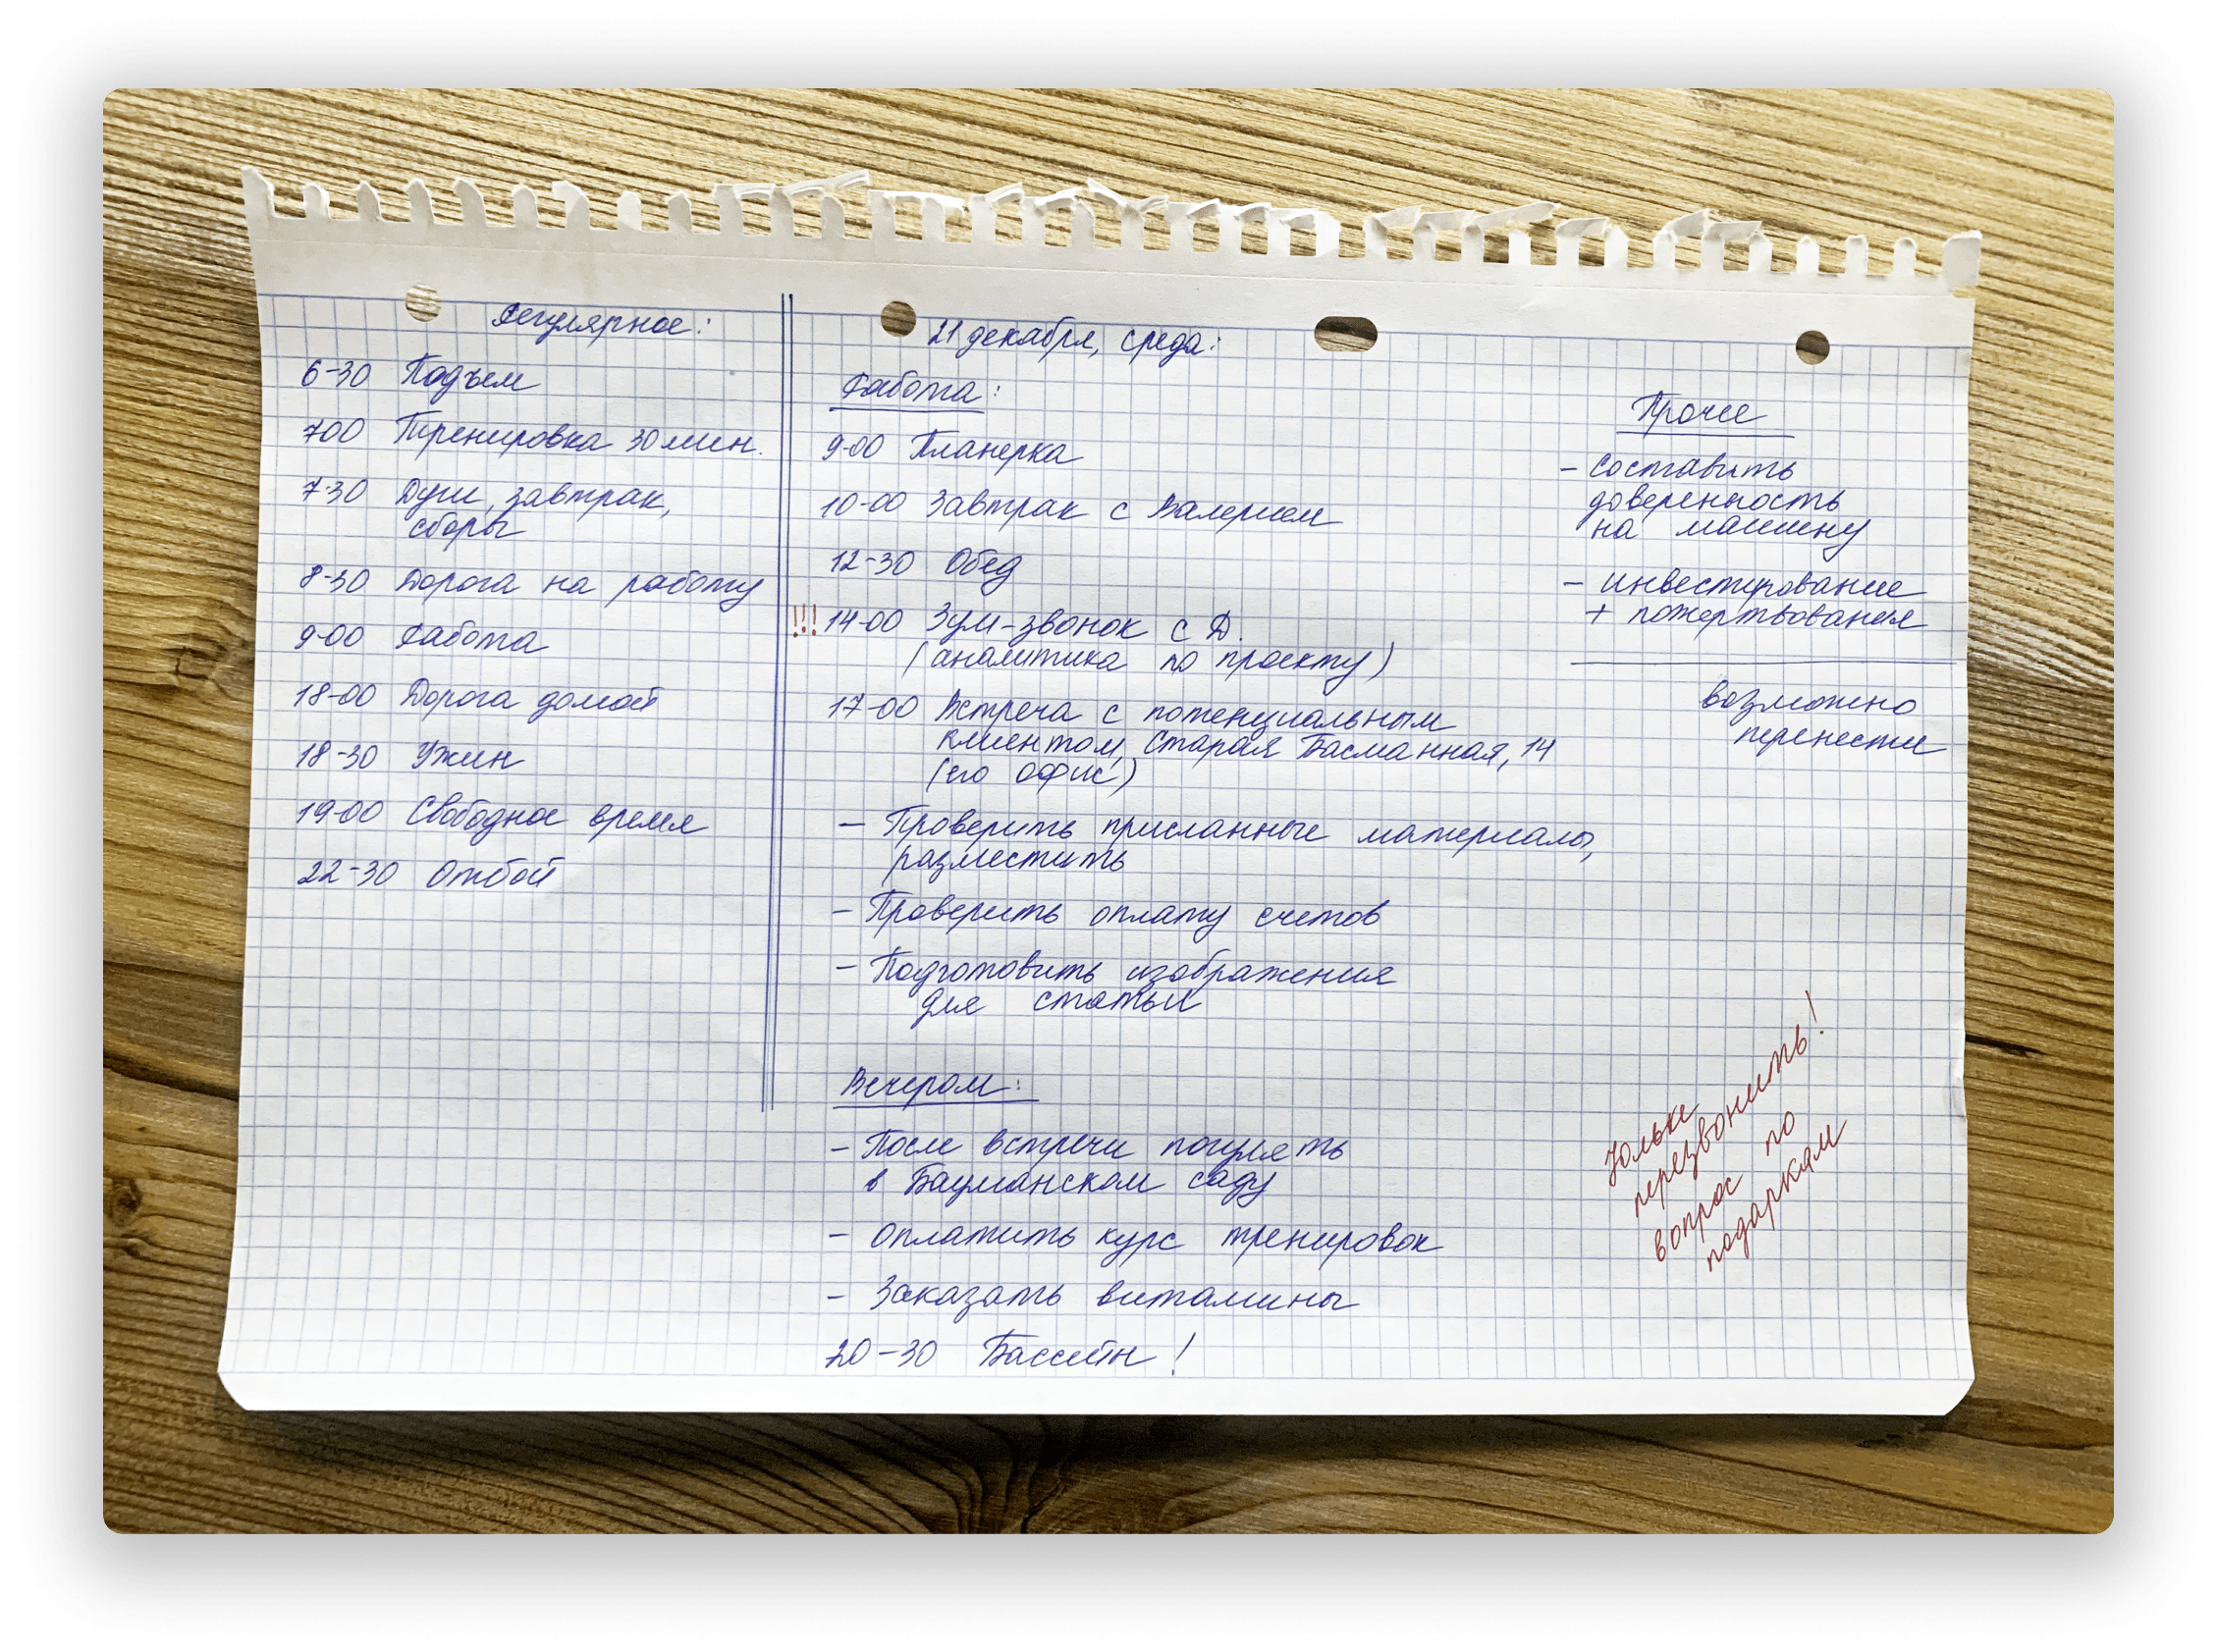 Регулярное:
6-30 Подъем
700 Тренировка 30 мин.
7-30 Душ, завтрак,
сборы
8-30 Дорога на работу
9-00 Работа
18-00 Дорога домой
18-30 Ужин
19-00 Свободное время
22-30 Отбой
21 декабря, среда:
Работа:
9-00 Планерка
10-00 Завтрак с Валерием
12-30 Обед
!!! 14-00 Зум-звонок с Д.
(аналитика по проекту)
17-00 Встреча с потенциальным
клиентом, Старая Басманная, 14
(его офис)
- Проверить присланные материалы,
разместить
- Проверить оплату счетов
- Подготовить изображения
для статьи
Вечером:
- После встречи погулять
в Бауманском саду
- Оплатить курс тренировок
- Заказать витамины
20-30 Бассейн!
Прочее
- Составить
доверенность
на машину
- инвестирование
+ пожертвования
возможно
перенести
Юльке
перезвонить!
вопрос по
подаркам